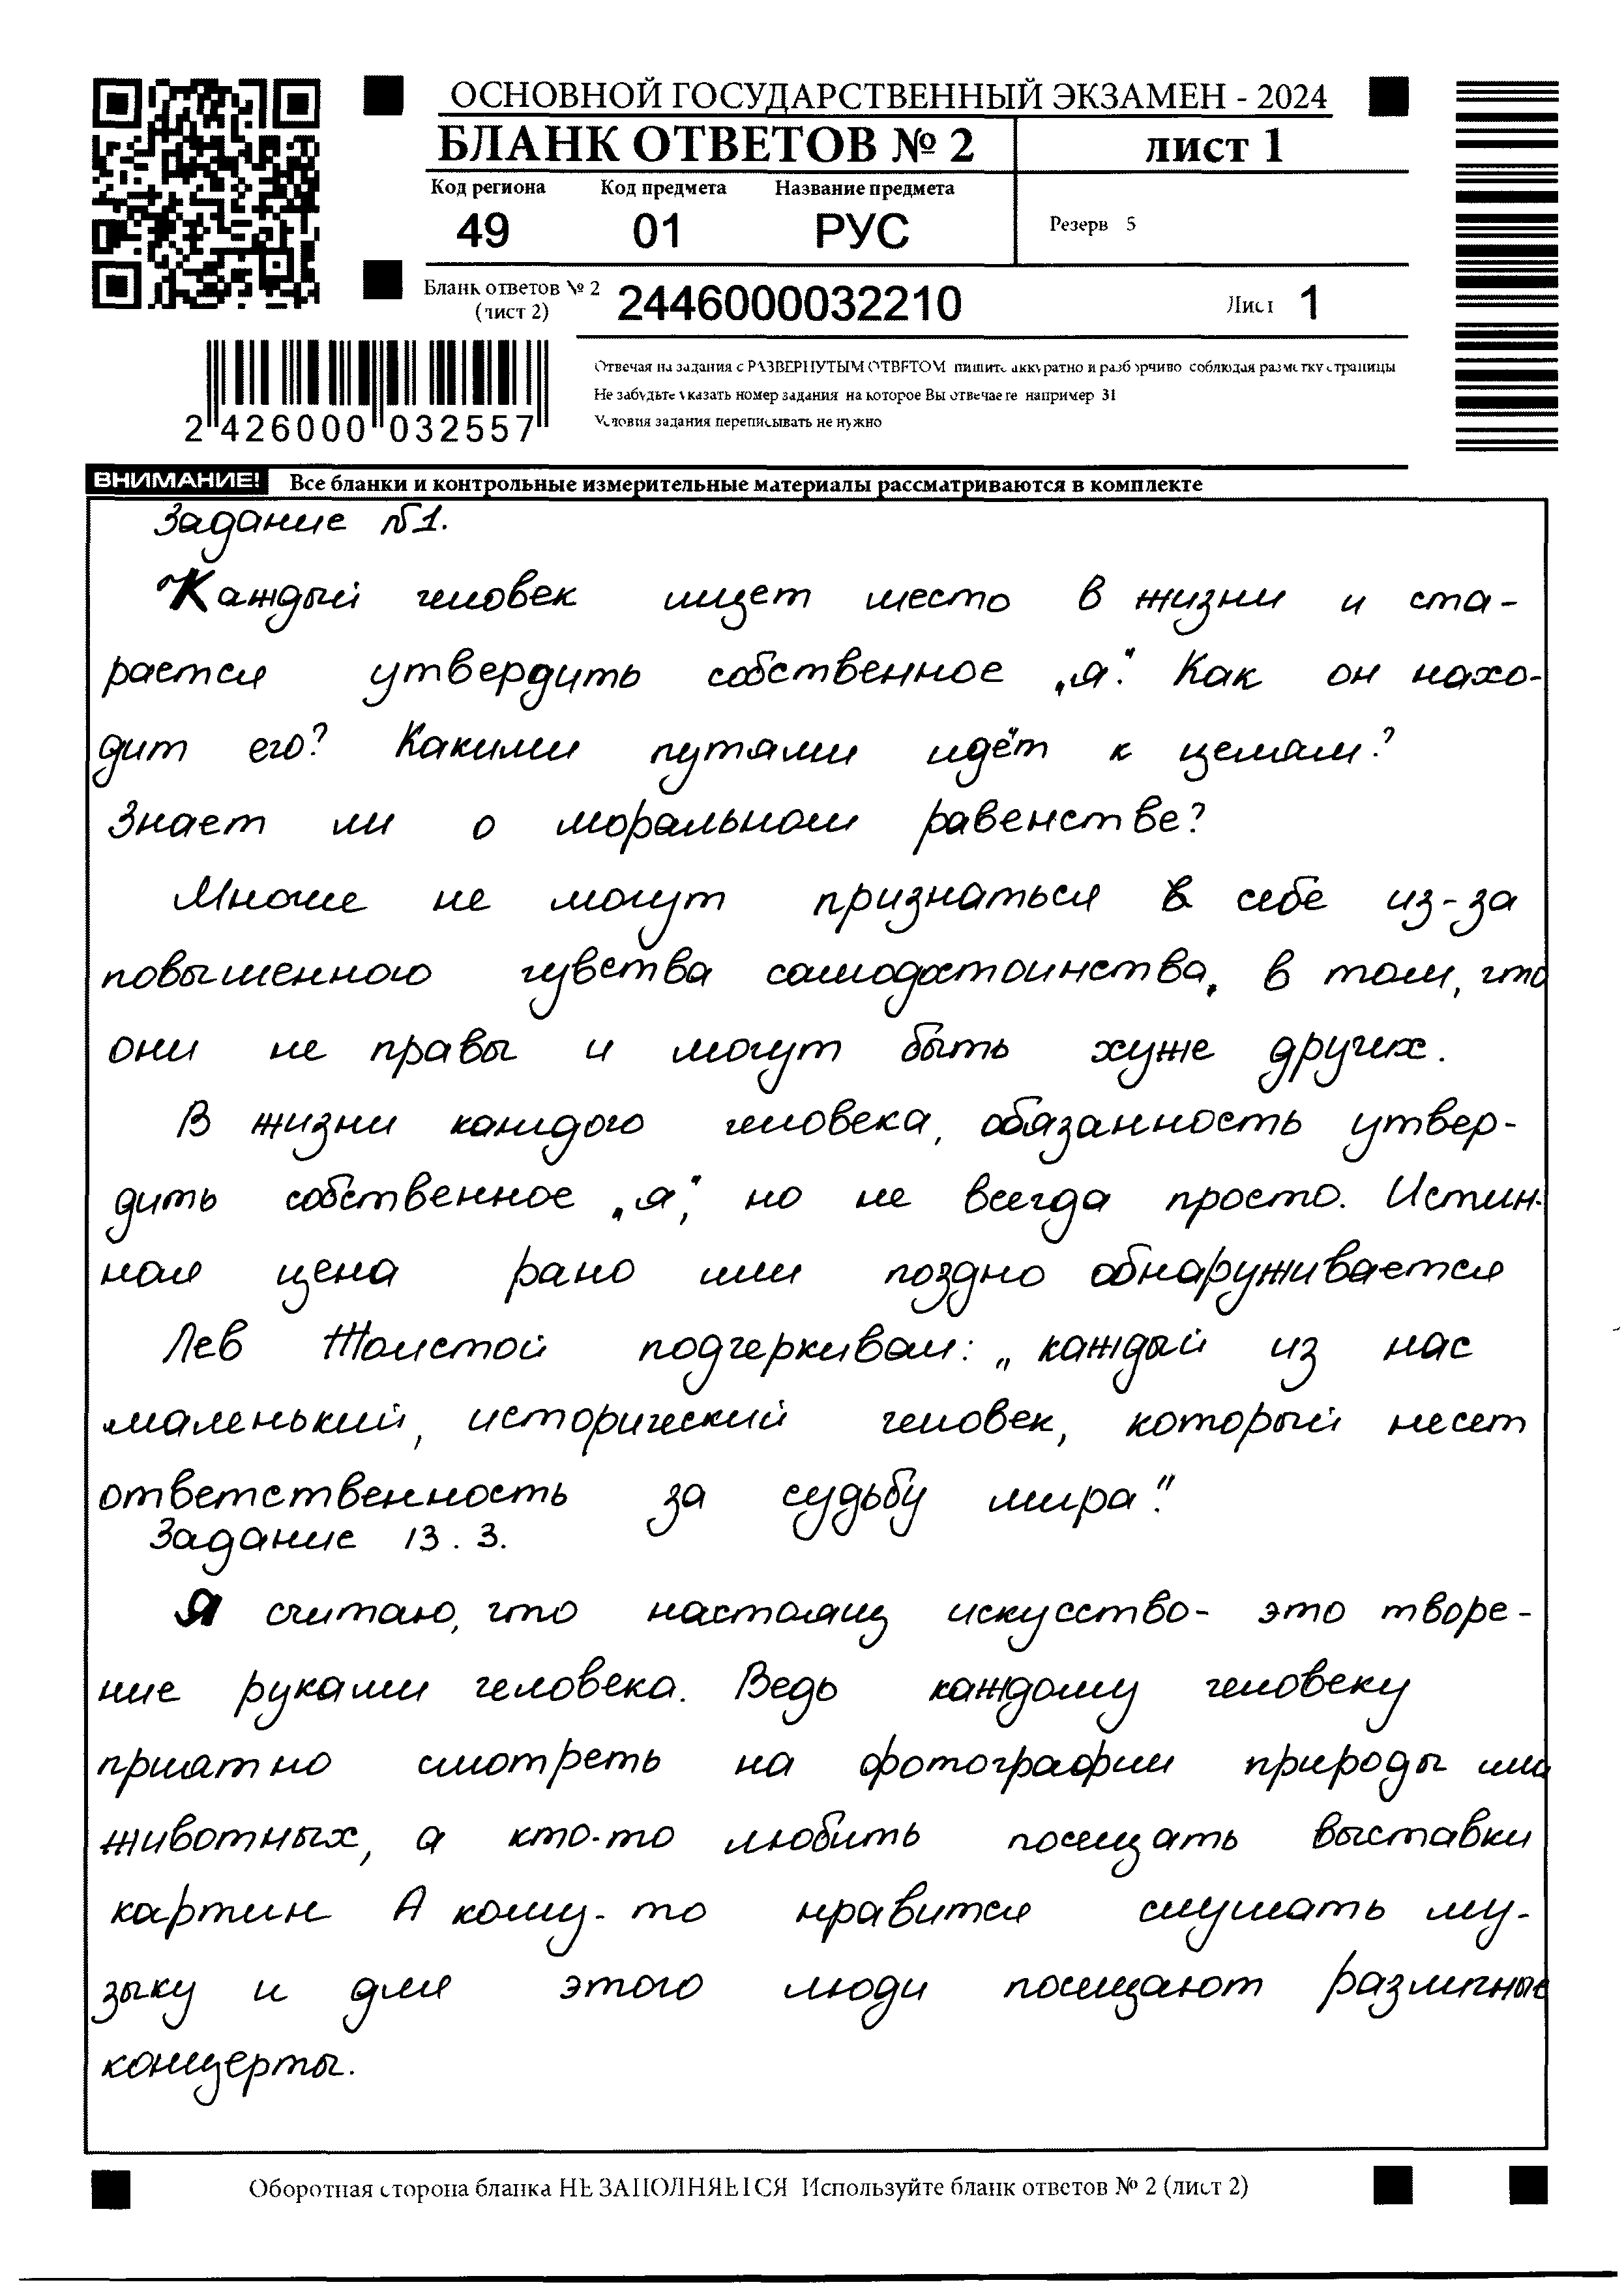 ОСНОВНОЙ ГОСУДАРСТВЕННЫЙ ЭКЗАМЕН - 2024
БЛАНК ОТВЕТОВ № 2
лист 1
Код региона Код предмета Название предмета
49 01 РУС
Резерв 5
Бланк ответов № 2
(лист 2)
2446000032210
Лист 1
Отвечая на задания с РАЗВЕРНУТЫМ ОТВЕТОМ пишите аккуратно и разборчиво соблюдая разметку страницы
Не забудьте указать номер задания на которое Вы отвечаете например 31
Условия задания переписывать не нужно
2 426000 032557
ВНИМАНИЕ! Все бланки и контрольные измерительные материалы рассматриваются в комплекте
Задание №1.
Каждый человек ищет место в жизни и ста-
рается утвердить собственное „я". Как он нахо-
дит его? Какими путями идёт к целям?
Знает ли о моральном равенстве?
Многие не могут признаться в себе из-за
повышенного чувства самодостоинства, в том, что
они не правы и могут быть хуже других.
В жизни каждого человека, обязанность утвер-
дить собственное „я", но не всегда просто. Истин-
ная цена рано или поздно обнаруживается
Лев Толстой подчеркивал: „каждый из нас
маленький, исторический человек, который несет
ответственность за судьбу мира".
Задание 13.3.
Я считаю, что настоящ искусство- это творе-
ние руками человека. Ведь каждому человеку
приятно смотреть на фотографии природы или
животных, а кто-то любить посещать выставки
картин А кому-то нравится слушать му-
зыку и для этого люди посещают различные
концерты.
Оборотная сторона бланка НЕ ЗАПОЛНЯЕТСЯ Используйте бланк ответов № 2 (лист 2)